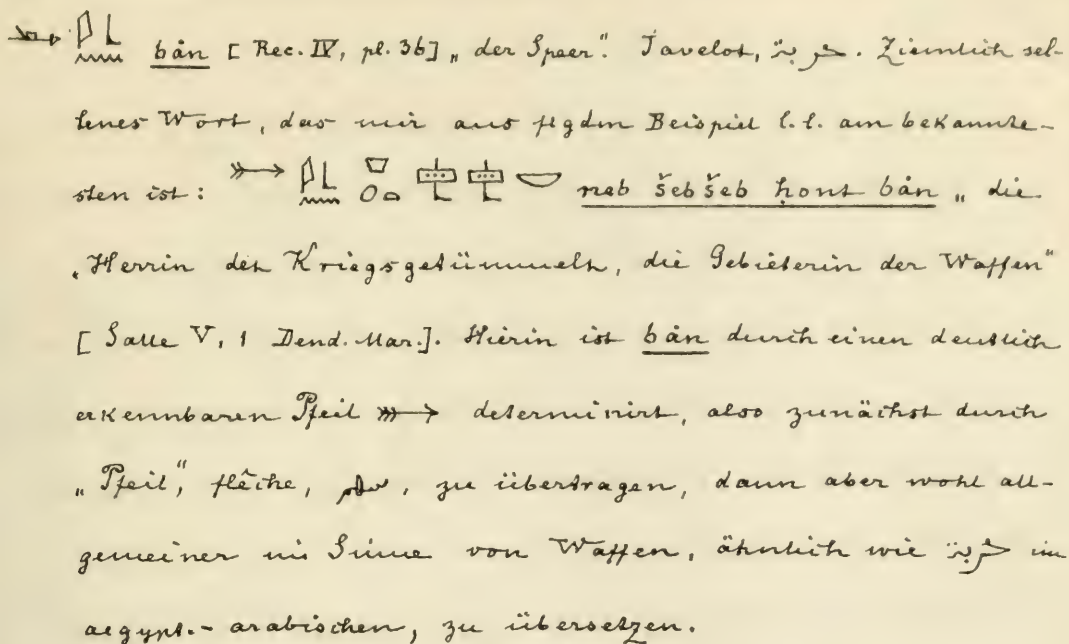 bȧn [Rec. IV, pl. 36] „der Speer”. Javelot, حربة. Ziemlich sel-
tenes Wort, das mir aus flgdm Beispiel l.l. am bekannte-
sten ist: neb šebšeb ḥont bȧn „die
„Herrin des Kriegsgetümmels, die Gebieterin der Waffen”
[Salle V, 1 Dend. Mar.]. Hierin ist bȧn durch einen deutlich
erkennbaren Pfeil determinirt, also zunächst durch
„Pfeil”, flèche, سهم, zu übertragen, dann aber wohl all-
gemeiner im Sinne von Waffen, ähnlich wie حربة im
aegypt.-arabischen, zu übersetzen.